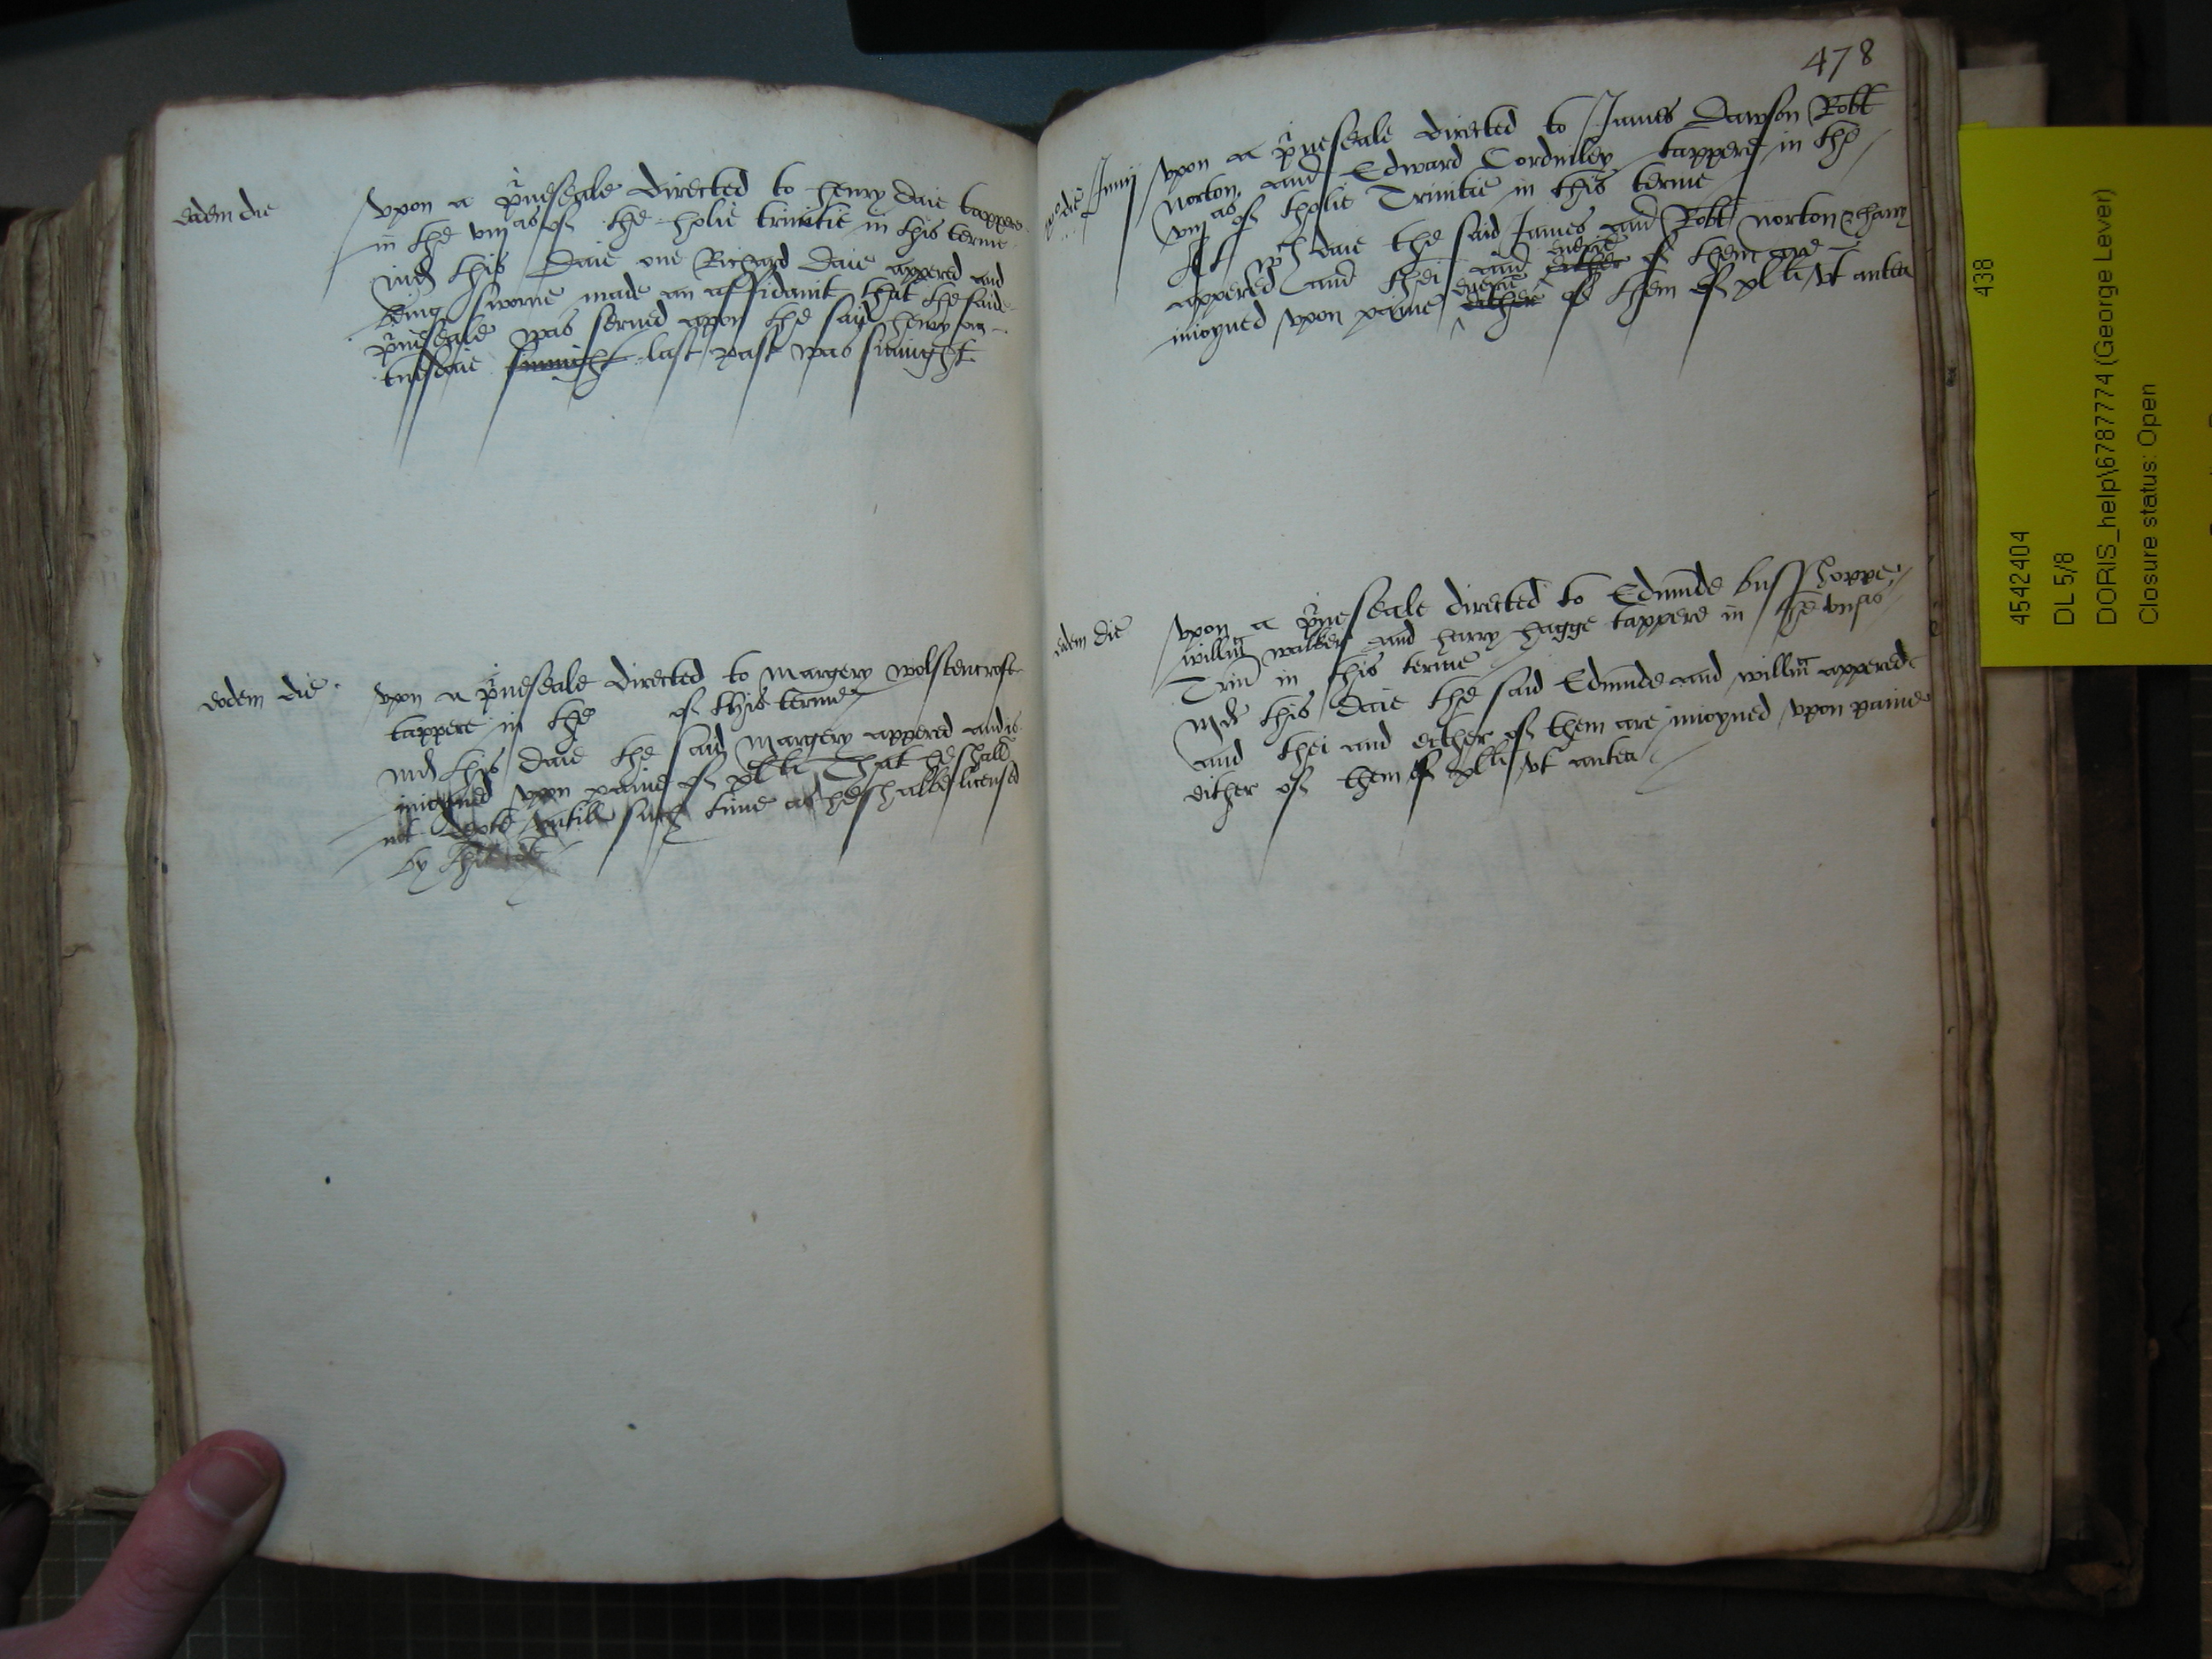 eodem die
vpon a p̃ueseale directed to henry daie tappere
in the viij as of the holie trinitie in this terme
md this Daie one Richard Daie appered and
being sworne made an affidauit that the said
p̃ueseale was serued apon the said henry on
tuesdaie last past was sinnight
eodem die
vpon a p̃ueseale directed to Margery wolstencroft
tappere in the of this terme
md this daie the said Margery appered and is
inioyned vpon paine of xl li That he shall
not Depte vntill such time as he shalbe licensed
by
478
die Junij
vpon a p̃ueseale directed to James Dawson Robt
Norton, and Edward Cordniley tappere in the
viij as of tholie Trinitie in this terme
At wch daie the said James and Robt Norton
appered and thei and euerie either of them are
inioyned vpon paine euerie either of them of xl li vt antea
eodem die
vpon a p̃ueseale directed to Edmũde busshoppe
willm̃ walker and harry hagge tappere in the viij as
Trin in this terme
md this Daie the said Edmũde and willm̃ appered
and thei and either of them are inioyned vpon paine
either of them of xl li vt antea
438
4542404
DL 5/8
DORIS_help\6787774 (George Lever)
Closure status: Open